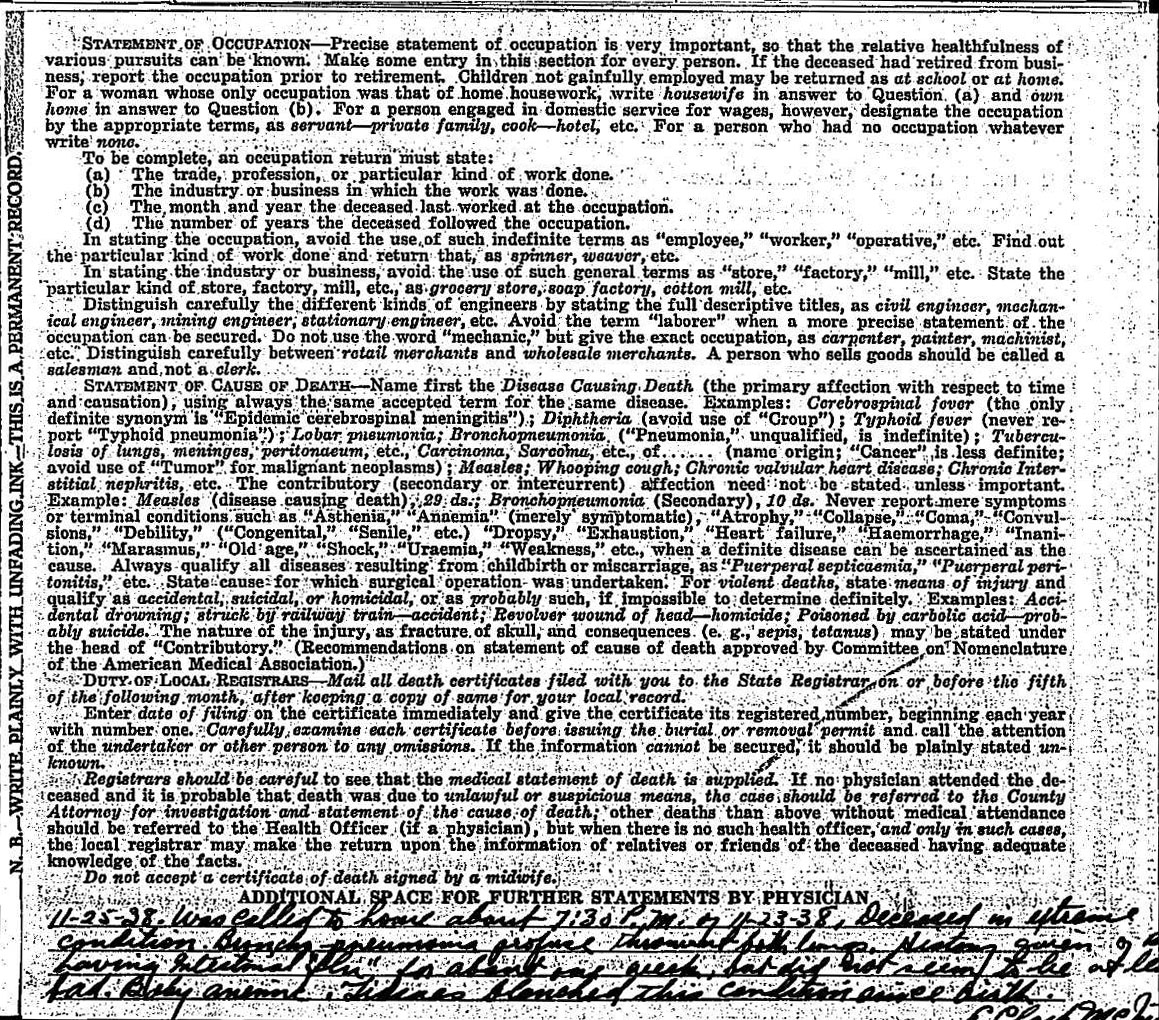 N. B.—WRITE PLAINLY WITH UNFADING INK—THIS IS A PERMANENT RECORD.
STATEMENT OF OCCUPATION—Precise statement of occupation is very important, so that the relative healthfulness of
various pursuits can be known. Make some entry in this section for every person. If the deceased had retired from busi-
ness, report the occupation prior to retirement. Children not gainfully employed may be returned as at school or at home.
For a woman whose only occupation was that of home housework, write housewife in answer to Question (a) and own
home in answer to Question (b). For a person engaged in domestic service for wages, however, designate the occupation
by the appropriate terms, as servant—private family, cook—hotel, etc. For a person who had no occupation whatever
write none.
To be complete, an occupation return must state:
(a) The trade, profession, or particular kind of work done.
(b) The industry or business in which the work was done.
(c) The month and year the deceased last worked at the occupation.
(d) The number of years the deceased followed the occupation.
In stating the occupation, avoid the use of such indefinite terms as "employee," "worker," "operative," etc. Find out
the particular kind of work done and return that, as spinner, weaver, etc.
In stating the industry or business, avoid the use of such general terms as "store," "factory," "mill," etc. State the
particular kind of store, factory, mill, etc., as grocery store, soap factory, cotton mill, etc.
Distinguish carefully the different kinds of engineers by stating the full descriptive titles, as civil engineer, mechan-
ical engineer, mining engineer, stationary engineer, etc. Avoid the term "laborer" when a more precise statement of the
occupation can be secured. Do not use the word "mechanic," but give the exact occupation, as carpenter, painter, machinist,
etc. Distinguish carefully between retail merchants and wholesale merchants. A person who sells goods should be called a
salesman and not a clerk.
STATEMENT OF CAUSE OF DEATH—Name first the Disease Causing Death (the primary affection with respect to time
and causation), using always the same accepted term for the same disease. Examples: Cerebrospinal fever (the only
definite synonym is "Epidemic cerebrospinal meningitis"); Diphtheria (avoid use of "Croup"); Typhoid fever (never re-
port "Typhoid pneumonia"); Lobar pneumonia; Bronchopneumonia ("Pneumonia," unqualified, is indefinite); Tubercu-
losis of lungs, meninges, peritonaeum, etc., Carcinoma, Sarcoma, etc., of....... (name origin; "Cancer" is less definite;
avoid use of "Tumor" for malignant neoplasms); Measles; Whooping cough; Chronic valvular heart disease; Chronic Inter-
stitial nephritis, etc. The contributory (secondary or intercurrent) affection need not be stated unless important.
Example: Measles (disease causing death), 29 ds.; Bronchopneumonia (Secondary), 10 ds. Never report mere symptoms
or terminal conditions such as "Asthenia," "Anaemia" (merely symptomatic), "Atrophy," "Collapse," "Coma," "Convul-
sions," "Debility," ("Congenital," "Senile," etc.) "Dropsy," "Exhaustion," "Heart failure," "Haemorrhage," "Inani-
tion," "Marasmus," "Old age," "Shock," "Uraemia," "Weakness," etc., when a definite disease can be ascertained as the
cause. Always qualify all diseases resulting from childbirth or miscarriage, as "Puerperal septicaemia," "Puerperal peri-
tonitis," etc. State cause for which surgical operation was undertaken. For violent deaths, state means of injury and
qualify as accidental, suicidal, or homicidal, or as probably such, if impossible to determine definitely. Examples: Acci-
dental drowning; struck by railway train—accident; Revolver wound of head—homicide; Poisoned by carbolic acid—prob-
ably suicide. The nature of the injury, as fracture of skull, and consequences (e. g., sepis, tetanus) may be stated under
the head of "Contributory." (Recommendations on statement of cause of death approved by Committee on Nomenclature
of the American Medical Association.)
DUTY OF LOCAL REGISTRARS—Mail all death certificates filed with you to the State Registrar on or before the fifth
of the following month, after keeping a copy of same for your local record.
Enter date of filing on the certificate immediately and give the certificate its registered number, beginning each year
with number one. Carefully examine each certificate before issuing the burial or removal permit and call the attention
of the undertaker or other person to any omissions. If the information cannot be secured, it should be plainly stated un-
known.
Registrars should be careful to see that the medical statement of death is supplied. If no physician attended the de-
ceased and it is probable that death was due to unlawful or suspicious means, the case should be referred to the County
Attorney for investigation and statement of the cause of death; other deaths than above without medical attendance
should be referred to the Health Officer (if a physician), but when there is no such health officer, and only in such cases,
the local registrar may make the return upon the information of relatives or friends of the deceased having adequate
knowledge of the facts.
Do not accept a certificate of death signed by a midwife.
ADDITIONAL SPACE FOR FURTHER STATEMENTS BY PHYSICIAN
11-25-38. Was called to home about 7:30 P.M. of 11-23-38, Deceased in extreme
condition. Broncho pneumonia profuse throughout both lungs. History given of
having Intestinal "flu" for about one week, but did not seem to be
bad. Baby anemic. Tissues blanched this condition since birth.